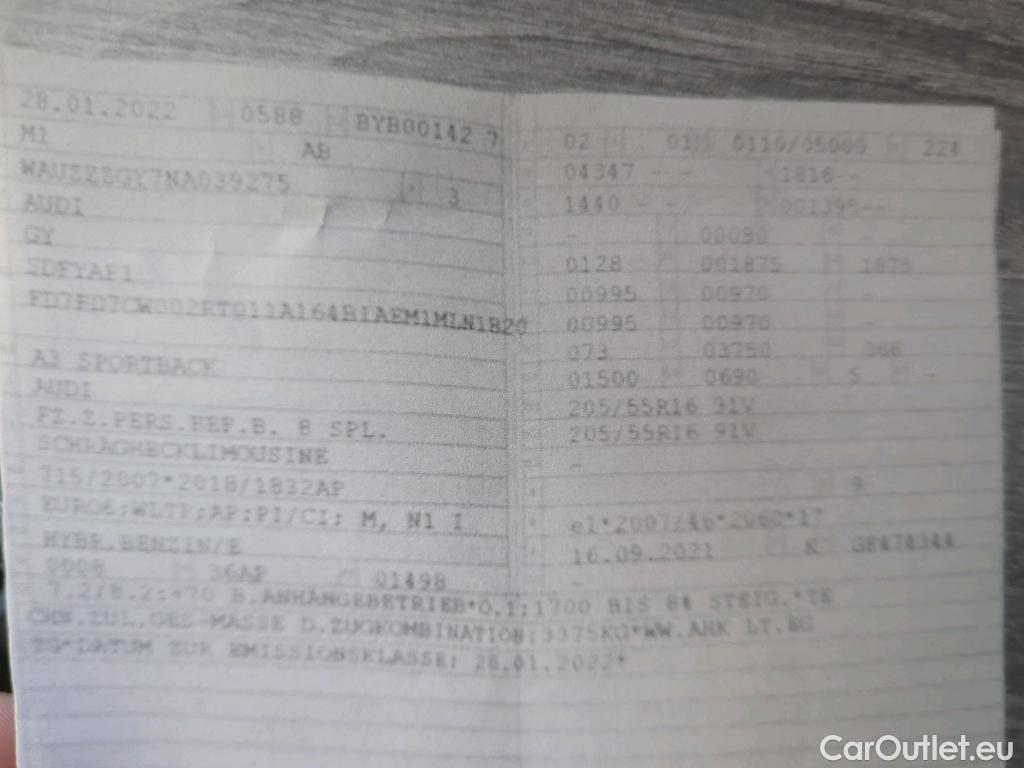 28.01.2022 0588 BYB00142 7
M1 AB
WAUZZZGY7NA039275 3
AUDI
GY
SDFYAF1
FD7FD7CW002RT011A164BIAEM1MLN1B20
A3 SPORTBACK
AUDI
FZ.Z.PERS.BEF.B. 8 SPL.
SCHRÄGHECKLIMOUSINE
715/2007*2018/1832AP
EURO6;WLTP;AP;PI/CI; M, N1 I
HYBR.BENZIN/E
0008 36AP 01498
02 01 0110/05000 224
04347 - - 1816--
1440 - - 001395--
- 00090 -
0128 001875 1875
00995 00970 -
00995 00970 -
073 03750 066
01500 0690 5 -
205/55R16 91V
205/55R16 91V
-
9
e1*2007/46*2060*17
16.09.2021 K GB474344
-
7.2/8.2:+70 B.ANHÄNGEBETRIEB*O.1:1700 BIS 8% STEIG.*TE
CHN.ZUL.GES-MASSE D.ZUGKOMBINATION:3375KG*WW.AHK LT.EG
TG*DATUM ZUR EMISSIONSKLASSE: 28.01.2022*
CarOutlet.eu